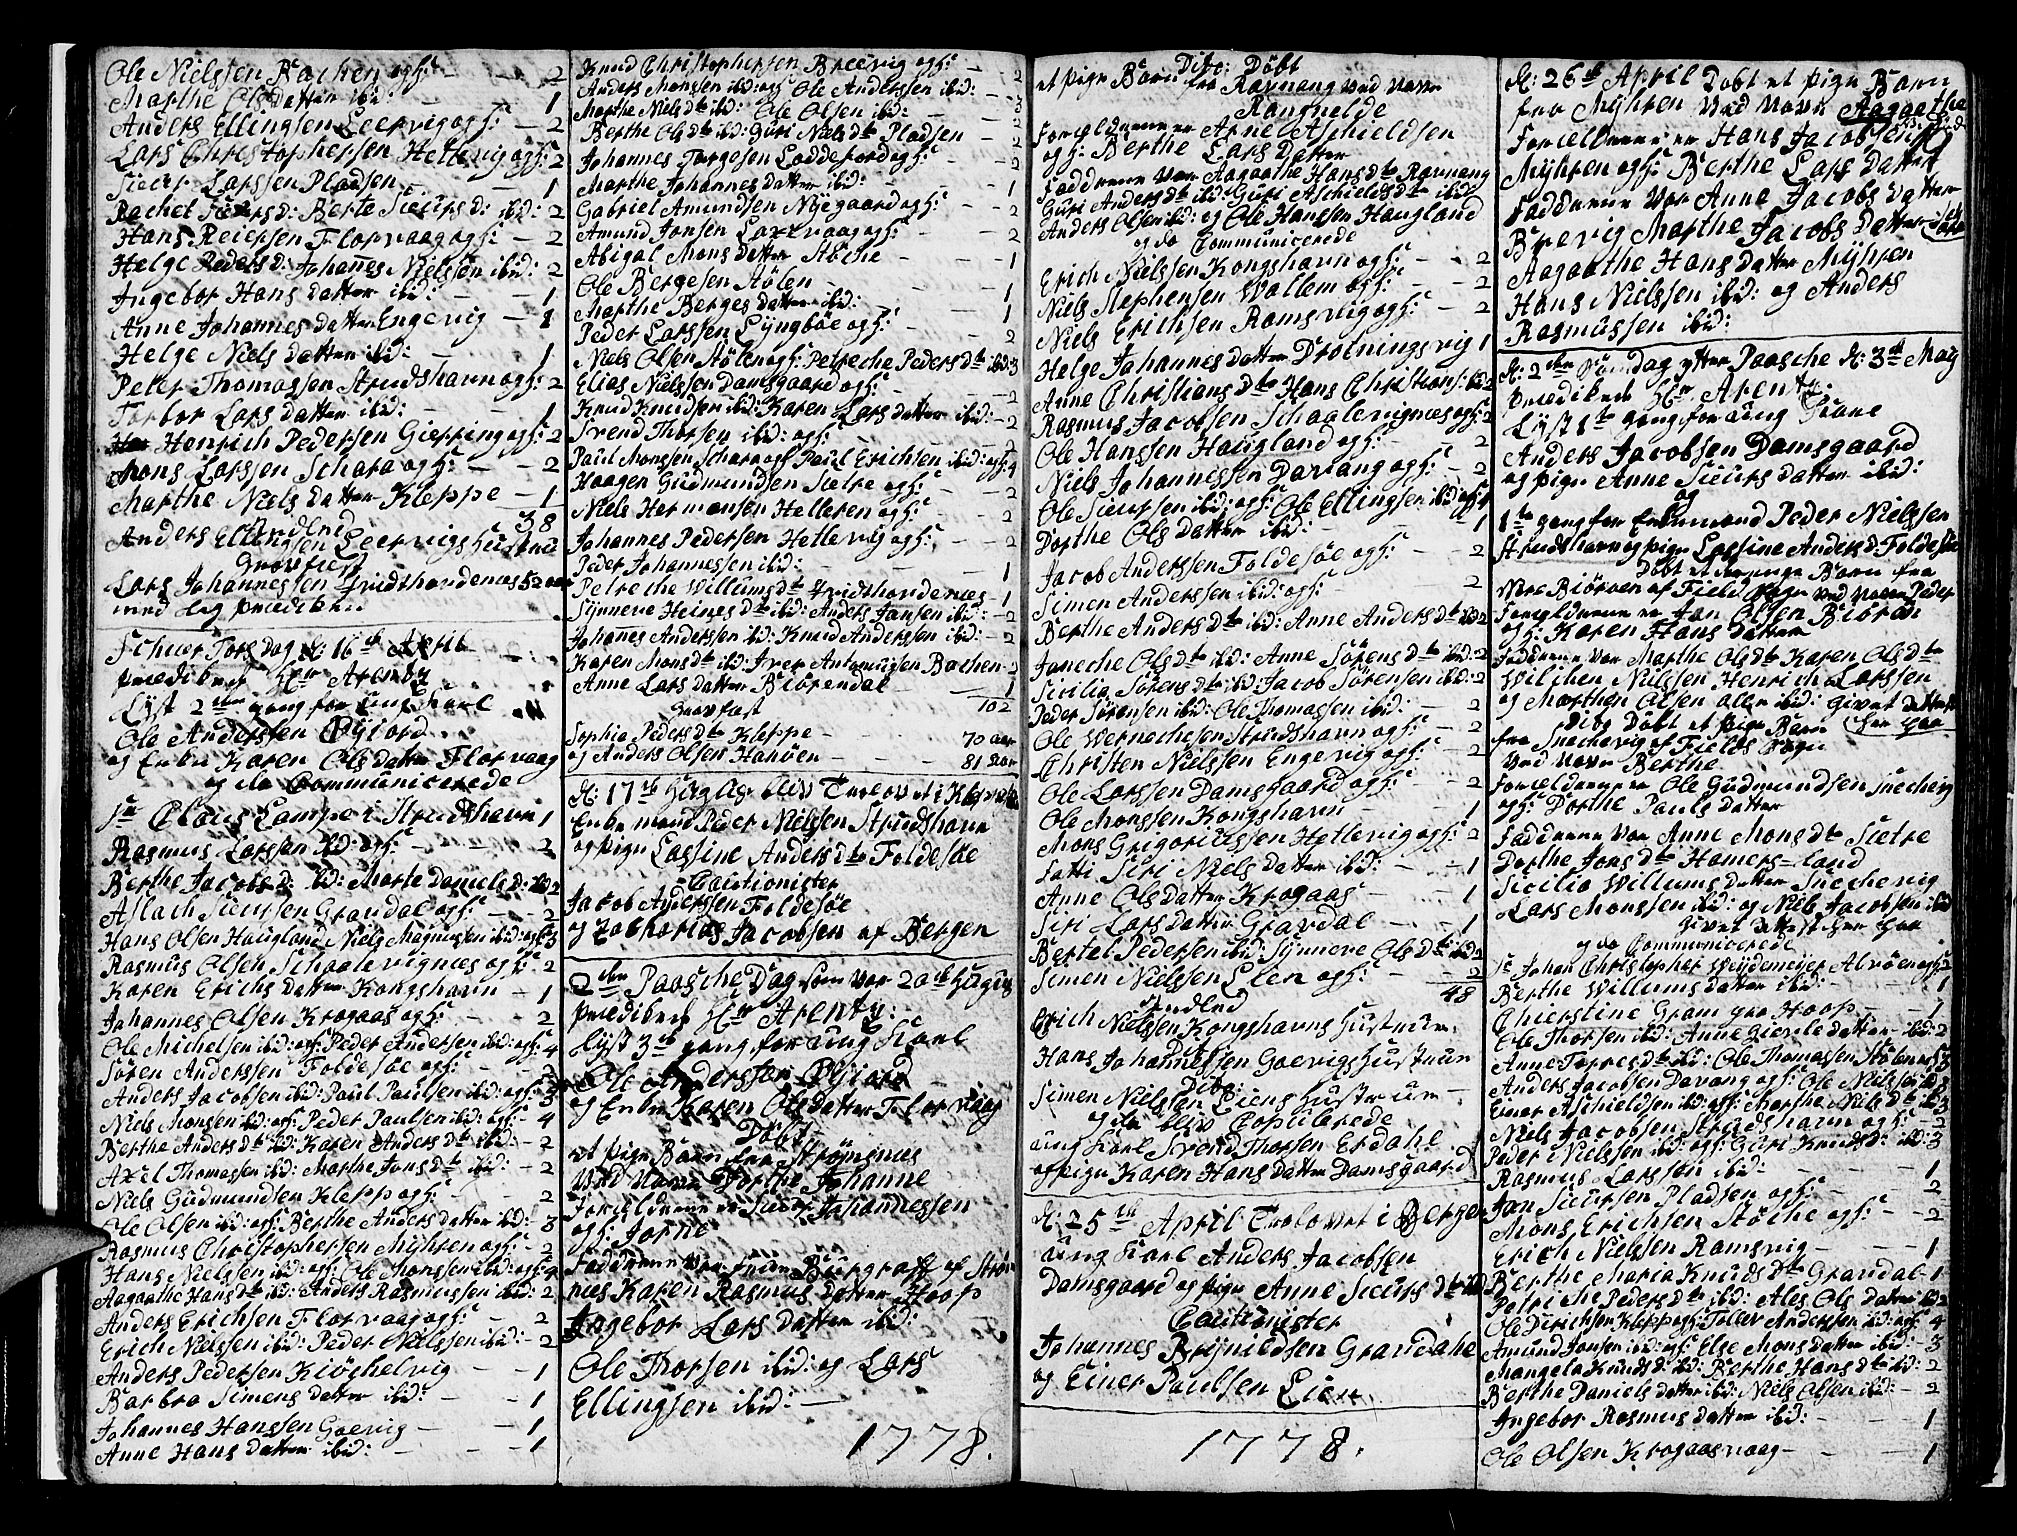 Ole Nielssen Bachen og H: - - 2
Marthe Olsdatter ibid: - 1
Anders Ellingsen Leervig og H: - 2
Lars Christophersen Hetlevig og H: 2
Siver Larssen Pladsen - - 1
Rachel Siversd: Berte Siversd: ibid: 2
Hans Reiersen Florvaag og H: - 2
Helge Pedersd: Johannes Nielssen ibid: 2
Ingebor Hans datter ibid: - - 1
Anne Johannes datter Engevig - 1
Helge Niels datter ibid: - 1
Peter Thomassen Strudshavn og H: 2
Torbor Lars datter ibid: - 1
Henrich Pedersen Gierring og H: 2
Mons Larssen Schara og H: - - 2
Marthe Niels datter Kleppe - 1
38
Indlend
Anders Ellingsen Leervigs Hustrue
Gravfæst
Lars Johannessen Tridthordenæs 52 aar
med lig prædiken
Schiær Torsdag d: 16de April
prædikede Hr Arentz
Lyst 2den gang for ung Karl
Ole Anderssen Øijord
og Enke Karen Olsdatter Florvaag
og da Communicerede
Sr Claus Lampe i Strudshavn 1
Rasmus Larssen ibid: og H: - 2
Berthe Jacobsd: ibid: Marte Danielsd: ibid 2
Aslach Siversen Grandal og H: - 2
Hans Olsen Haugland Niels Magnussen ibid: og H: 3
Rasmus Olsen Schaalevignæs og H: 2
Karen Erichs datter Kongshavn - 1
Johannes Olsen Krogaas og H: - 2
Ole Michelsen ibid: og H: Peder Andersen ibid: og H: 4
Søren Anderssen Foldesøe og H: - 2
Anders Jacobsen ibid: Paul Paulsen ibid: og H: 3
Niels Monsen ibid: og H: Peder Paulsen ibid: og H: - 4
Berthe Andersdtr ibid: Karen Andersdtr ibid: - 2
Axel Thomassen ibid: Marthe Jonsdtr ibid: - 2
Niels Gudmundsen Klepp og H: - 2
Ole Olsen ibid: og H: Berthe Anders datter ibid: 3
Rasmus Christophersen Myhren og H: - 2
Hans Nielssen ibid: og H: Ole Monssen ibid: og H: 4
Aagaathe Hansdtr ibid: Anders Rasmussen ibid: 2
Anders Erichsen Florvaag og H: - 2
Erich Nielssen ibid: Peder Nielssen ibid: - 2
Anders Pedersen Kiøchelvig - - 1
Barbra Simens datter ibid: - 1
Johannes Hanssen Gaevig - - 1
Anne Hans datter ibid: - - 1
Knud Christophersen Breevig og H: - 2
Anders Monssen ibid: og H: Ole Anderssen ibid: - 3
Marthe Nielsdtr ibid: Ole Olsen ibid: - 2
Berthe Olsdtr ibid: Guri Nielsdtr Pladsen - 2
Johannes Torgesen Laddefiord og H: - 2
Marthe Johannes datter ibid: - - 1
Gabriel Amundsen Nyegaard og H: - 2
Amund Jonsen Laxevaag og H: - 2
Abigal Mons datter Støche - - 1
Ole Bergesen Stølen - - 1
Marthe Berges datter ibid: - 1
Peder Larssen Lyngbøe og H: - 2
Niels Olsen Stølen og H: Petreche Pedersdtr ibid: 3
Elias Nielssen Damsgaard og H: - 2
Knud Knudsen ibid: Karen Lars datter ibid: - 2
Svend Thorsen ibid: og H: - 2
Paul Monssen Schara og H: Paul Erichsen ibid: og H: 4
Haagen Gudmundsen Sætre og H: - 2
Niels Hermansen Helleren og H: - 2
Johannes Pedersen Hetlevig og H: - 2
Peder Johannessen ibid: - 1
Petreche Willumsdtr Tridthordenæs - 1
Synneve Heinesdtr ibid: Anders Jansen ibid: - 2
Johannes Anderssen ibid: Knud Anderssen ibid: - 2
Karen Monsdtr ibid: Iver Antonisen Bachen - 2
Anne Lars datter Biørendal - 1
102
Gravfæst
Sophia Pedersdtr Kleppe - 70 aar
og Anders Olsen Hanøen - - 81 aar
d: 17de Hujus blev Trolovet i Klosteret
Enke mand Peder Nielssen Strudshavn
og pige Larsine Andersdtr Foldesøe
Cautionister
Jacob Anderssen Foldesøe
og Zacharias Jacobsen af Bergen
2den Paasche Dag som var 20de Hujus
prædikede Hr Arentz
Lyst 3de gang for ung Karl
Ole Anderssen Øijord
og Enke Karen Olsdatter Florvaag
Døbt
et pige Barn fra Strømsnæs
Ved Navn Dorthe Johanne
Forældrene er Siver Johannessen
og H: Jorne
Fadderne var Burgraff af Strøm
næs Karen Rasmus datter Hoop
Ingebor Lars datter ibid:
Ole Thorsen ibid: og Lars
Ellingsen ibid: -
1778.
Dito: Døbt
et pige Barn fra Ravnang Ved Navn
Rangnelde
Forældrene er Arne Aschieldsen
og H: Berthe Lars datter
Fadderne Var Aagaathe Hansdtr Ravnang
Guri Andersdtr ibid: Guri Aschieldsdtr ibid:
Anders Olsen ibid: og Ole Hanssen Haugland
og da Communicerede
Erich Nielssen Kongshavn og H: - - 2
Niels Stephensen Wallem og H: - 2
Niels Erichsen Ramsvig og H: - 2
Helge Johannesdatter Drotningsvig 1
Anne Christiansdtr Hans Christians: ibid 2
Rasmus Jacobsen Schaalevignæs og H: 2
Ole Hanssen Haugland og H: - 2
Niels Johannissen Davang og H: - 2
Ole Siversen ibid: og H: Ole Ellingsen ibid og H: 4
Dorthe Ols datter ibid: - 1
Jacob Anderssen Foldesøe og H: - 2
Simen Anderssen ibid: og H: - 2
Berthe Andersdtr ibid: Anne Andersdtr ibid 2
Janeche Olsdtr ibid: Anne Sørensdtr ibid: 2
Sicilia Sørensdtr ibid: Jacob Sørensen ibid: 2
Peder Sørensen ibid: Ole Thomassen ibid: 2
Ole Wernechesen Strudshavn og H: - 2
Christen Nielssen Engevig og H: - 2
Ole Larssen Damsgaard og H: - 2
Ole Monssen Kongshavn - 1
Mons Grigoriussen Hetlevig og H: 2
Fatti Siri Niels datter ibid: - 1
Anne Ols datter Krogaas - - 1
Siri Lars datter Gravdal - - 1
Bertel Pedersen ibid: Synneve Olsdtr ibid 2
Simen Nielssen Lien og H: - - 2
48
Indlend
Erich Nielssen Kongshavns Hustrue.
Hans Johannessen Gaevigs Hustrue
Dito:
Simen Nielssen Liens Hustrue -
og da blev Copulerede
ung Karl Svend Thorsen Erdahl
og pige Karen Hans datter Damsgaard
d: 25de April Trolovet i Bergen
ung Karl Anders Jacobsen
Damsgaard og pige Anne Siversdtr ibid
Cautionister
Johannes Brynildsen Gravdahl
og Einer Paulsen Lien
1778.
d: 26de April Døbt et pige Barn
fra Myhren Ved Navn Aagaathe
Forældrene er Hans Jacobsen
Myhren og H: Berthe Lars datter
Fadderne Var Anne Jacobs datter
Brevig Marthe Jacobs datter
Aagaathe Hans datter Myhren
Hans Nielssen ibid: og Anders
Rasmussen ibid:
d: 2den Søndag efter Paasche d: 3de May
prædikede Hr Arentz
Lyst 1te gang for ung Karl
Anders Jacobsen Damsgaard
og pige Anne Sivers datter ibid:
og
1te gang for Enkemand Peder Nielssen
Strudshavn og pige Larsine Andersd: Foldesøe
Døbt et drenge Barn fra
Biørøen af Field Sogn Ved Navn Peder
Forældrene er Jan Olsen Biørøen
og H: Karen Hans datter
Fadderne Var Marthe Olsdtr Karen Olsdtr
Wilchen Nielssen Henrich Larssen
og Marthen Olsen alle ibid: Givet
Dito Døbt et pige Barn
fra Snechevig af Fields Sogn
Ved Navn Berthe
Forældrene er Ole Gudmundsen Snechevig
og H: Dorthe Pauls datter
Fadderne Var Anne Monsdtr Sætre
Dorthe Jonsdtr Hamers-land
Sicilia Willums datter Snechevig
Lars Monssen ibid: og Niels Jacobsen ibid
Givet
og da Communicerede
Sr Johan Christopher Weydemeyer Alvøen og H: 2
Berthe Willums datter ibid: - 1
Chierstine Gram fra Hoop - - 1
Ole Thorsen ibid: Anne Gierle datter ibid: 2
Anne Torresdtr ibid: Ole Thomassen Stølen og H: 3
Anders Jacobsen Davang og H: Ole Nielssen ibid 3
Einar Aschieldsen ibid: og H: Marthe Nielsdtr ibid 3
Niels Jacobsen Strudshavn og H: - 2
Peder Nielssen ibid: og H: Guri Knudsd: ibid: 3
Rasmus Larssen ibid: - - 1
Jan Siversen Pladsen og H: - 2
Mons Erichsen Støche og H: - - 2
Erich Nielssen Ramsvig - - 1
Berthe Maria Knudsdtr Grandal - 1
Petriche Pedersdtr ibid: Ales Ols datter ibid 2
Ole Dirichsen Klepp og H: Tollev Anderssen ibid: og H: - 4
Amund Jonsen ibid: og H: Else Mons datter ibid: - 3
Mangela Knudsd: ibid: Berthe Hansdtr ibid: - 2
Berthe Daniels datter ibid: Niels Olsen ibid: - 2
Ingebor Rasmus datter ibid: - 1
Ole Olsen Krogaasvaag - - 1